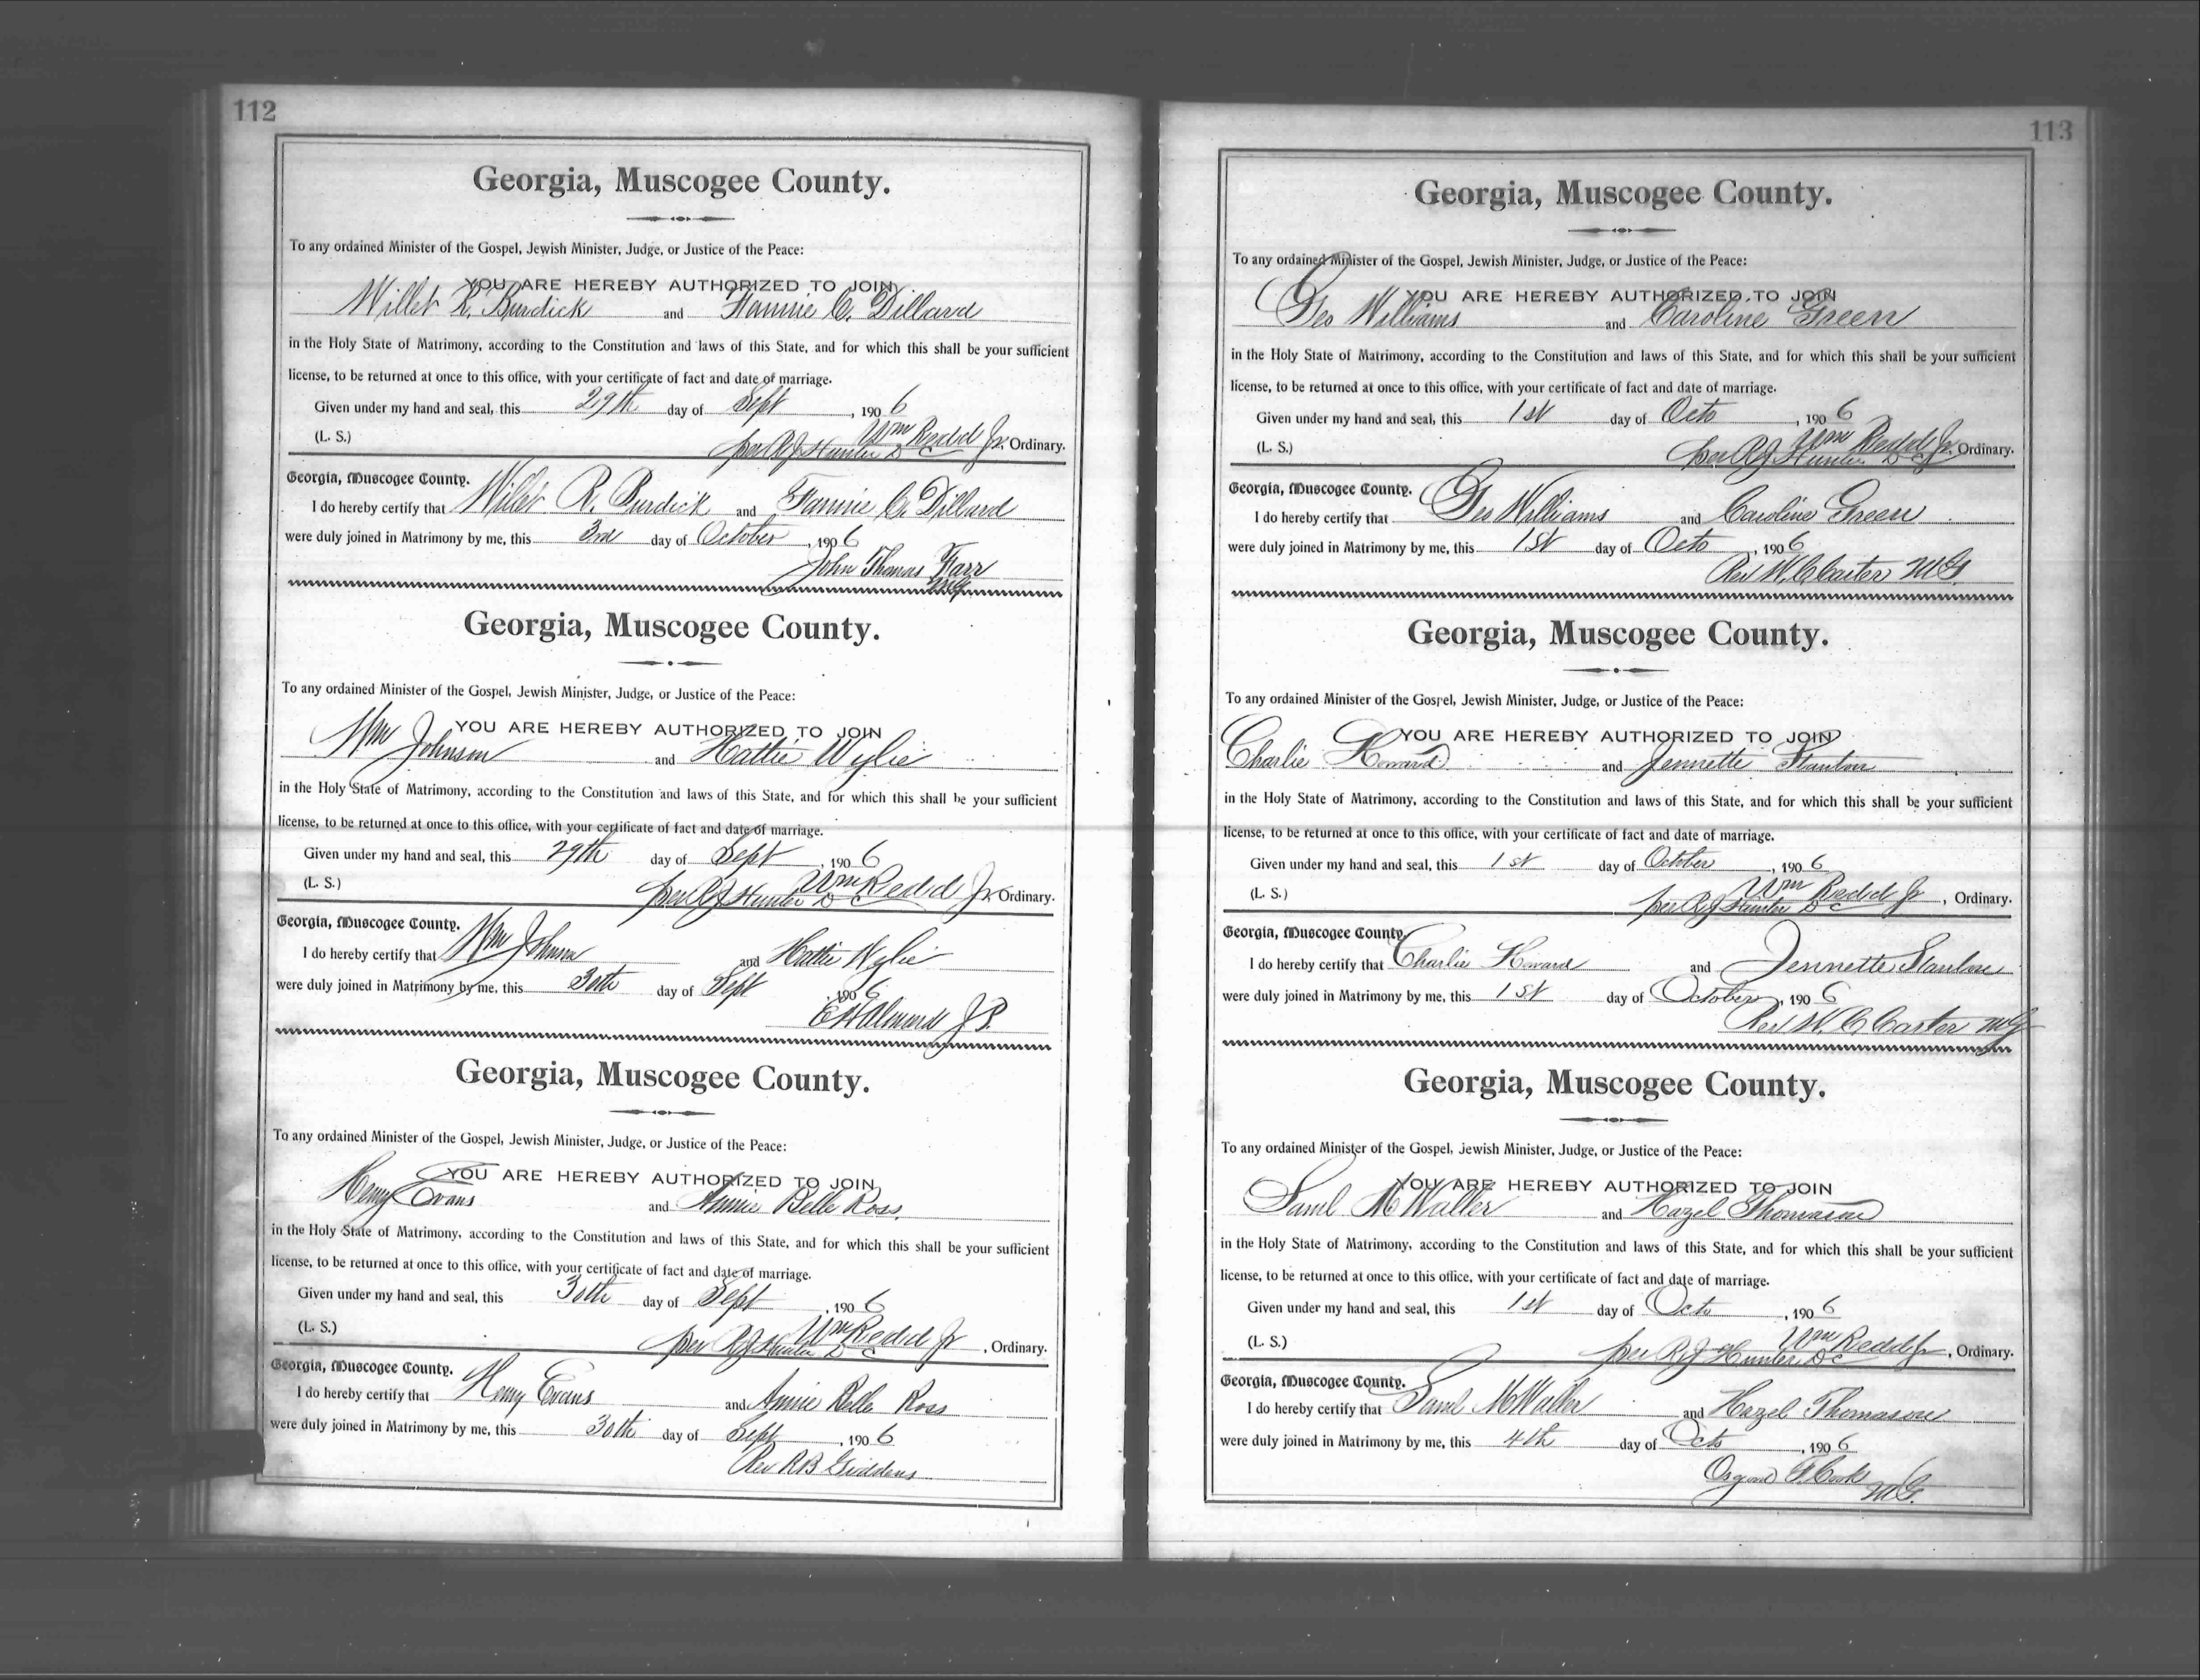 112
Georgia, Muscogee County.
To any ordained Minister of the Gospel, Jewish Minister, Judge, or Justice of the Peace:
YOU ARE HEREBY AUTHORIZED TO JOIN
Willet R. Burdick and Fannie C. Dillard
in the Holy State of Matrimony, according to the Constitution and laws of this State, and for which this shall be your sufficient
license, to be returned at once to this office, with your certificate of fact and date of marriage.
Given under my hand and seal, this 29th day of Sept, 1906
Wm Redd Jr, Ordinary.
(L. S.) per R J Hunter D C
Georgia, Muscogee County.
I do hereby certify that Willet R. Burdick and Fannie C. Dillard
were duly joined in Matrimony by me, this 3rd day of October, 1906
John Thomas Farr
MG
Georgia, Muscogee County.
To any ordained Minister of the Gospel, Jewish Minister, Judge, or Justice of the Peace:
YOU ARE HEREBY AUTHORIZED TO JOIN
Wm Johnson and Hattie Wylie
in the Holy State of Matrimony, according to the Constitution and laws of this State, and for which this shall be your sufficient
license, to be returned at once to this office, with your certificate of fact and date of marriage.
Given under my hand and seal, this 29th day of Sept, 1906
Wm Redd Jr, Ordinary.
(L. S.) per R J Hunter D C
Georgia, Muscogee County.
I do hereby certify that Wm Johnson and Hattie Wylie
were duly joined in Matrimony by me, this 30th day of Sept, 1906
J P.
Georgia, Muscogee County.
To any ordained Minister of the Gospel, Jewish Minister, Judge, or Justice of the Peace:
YOU ARE HEREBY AUTHORIZED TO JOIN
Henry Evans and Annie Belle Ross.
in the Holy State of Matrimony, according to the Constitution and laws of this State, and for which this shall be your sufficient
license, to be returned at once to this office, with your certificate of fact and date of marriage.
Given under my hand and seal, this 30th day of Sept, 1906
Wm Redd Jr, Ordinary.
(L. S.) per R J Hunter D C
Georgia, Muscogee County.
I do hereby certify that Henry Evans and Annie Belle Ross
were duly joined in Matrimony by me, this 30th day of Sept, 1906
Rev R B Giddens
113
Georgia, Muscogee County.
To any ordained Minister of the Gospel, Jewish Minister, Judge, or Justice of the Peace:
YOU ARE HEREBY AUTHORIZED TO JOIN
Geo Williams and Caroline Green
in the Holy State of Matrimony, according to the Constitution and laws of this State, and for which this shall be your sufficient
license, to be returned at once to this office, with your certificate of fact and date of marriage.
Given under my hand and seal, this 1st day of Octo, 1906
Wm Redd Jr. Ordinary.
(L. S.) per R J Hunter D C
Georgia, Muscogee County.
I do hereby certify that Geo Williams and Caroline Green
were duly joined in Matrimony by me, this 1st day of Octo, 1906
Rev W. C. Carter MG
Georgia, Muscogee County.
To any ordained Minister of the Gospel, Jewish Minister, Judge, or Justice of the Peace:
YOU ARE HEREBY AUTHORIZED TO JOIN
Charlie Howard and Jennette Stanton
in the Holy State of Matrimony, according to the Constitution and laws of this State, and for which this shall be your sufficient
license, to be returned at once to this office, with your certificate of fact and date of marriage.
Given under my hand and seal, this 1st day of October, 1906
Wm Redd Jr, Ordinary.
(L. S.) per R J Hunter D C
Georgia, Muscogee County.
I do hereby certify that Charlie Howard and Jennette Stanton
were duly joined in Matrimony by me, this 1st day of October, 1906
Rev W. C. Carter MG
Georgia, Muscogee County.
To any ordained Minister of the Gospel, Jewish Minister, Judge, or Justice of the Peace:
YOU ARE HEREBY AUTHORIZED TO JOIN
Saml M Waller and Hazel Thomason
in the Holy State of Matrimony, according to the Constitution and laws of this State, and for which this shall be your sufficient
license, to be returned at once to this office, with your certificate of fact and date of marriage.
Given under my hand and seal, this 1st day of Octo, 1906
Wm Redd Jr, Ordinary.
(L. S.) per R J Hunter D C
Georgia, Muscogee County.
I do hereby certify that Saml M Waller and Hazel Thomason
were duly joined in Matrimony by me, this 4th day of Octo, 1906
Osgood F. Cook
MG.